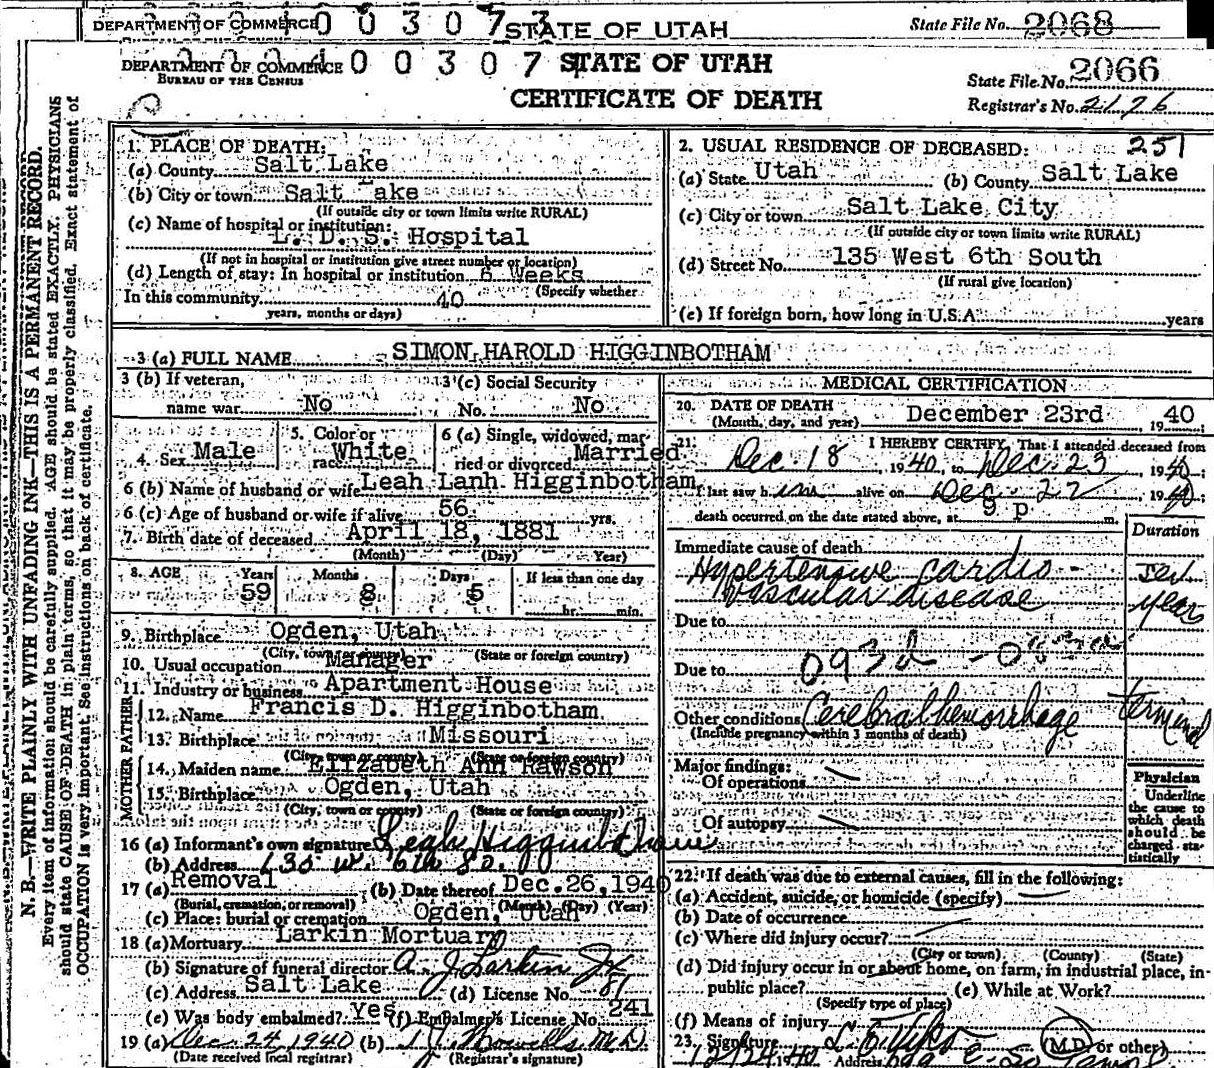 DEPARTMENT OF COMMERCE 003073 STATE OF UTAH State File No. 2068
DEPARTMENT OF COMMERCE 0 0 3 0 7 STATE OF UTAH
BUREAU OF THE CENSUS
State File No. 2066
CERTIFICATE OF DEATH
Registrar's No. 2126
N. B.—WRITE PLAINLY WITH UNFADING INK—THIS IS A PERMANENT RECORD.
Every item of information should be carefully supplied. AGE should be stated EXACTLY. PHYSICIANS
should state CAUSE OF DEATH in plain terms, so that it may be properly classified. Exact statement of
OCCUPATION is very important. See instructions on back of certificate.
1. PLACE OF DEATH:
(a) County Salt Lake
(b) City or town Salt Lake
(If outside city or town limits write RURAL)
(c) Name of hospital or institution:
L. D. S. Hospital
(If not in hospital or institution give street number or location)
(d) Length of stay: In hospital or institution 6 Weeks
(Specify whether
In this community 40
years, months or days)
2. USUAL RESIDENCE OF DECEASED: 251
(a) State Utah (b) County Salt Lake
(c) City or town Salt Lake City
(If outside city or town limits write RURAL)
(d) Street No. 135 West 6th South
(If rural give location)
(e) If foreign born, how long in U.S.A. years
3 (a) FULL NAME SIMON HAROLD HIGGINBOTHAM
3 (b) If veteran, 3 (c) Social Security
name war No No. No
4. Sex Male 5. Color or race White 6 (a) Single, widowed, married or divorced Married
6 (b) Name of husband or wife Leah Lanh Higginbotham
6 (c) Age of husband or wife if alive 56 yrs.
7. Birth date of deceased April 18, 1881
(Month) (Day) Year)
8. AGE Years Months Days If less than one day
59 8 5 hr. min.
9. Birthplace Ogden, Utah
(City, town or county) (State or foreign country)
10. Usual occupation Manager
11. Industry or business Apartment House
FATHER
12. Name Francis D. Higginbotham
13. Birthplace Missouri
(City, town or county) (State or foreign country)
MOTHER
14. Maiden name Elizabeth Ann Rawson
15. Birthplace Ogden, Utah
(City, town or county) (State or foreign country)
16 (a) Informant's own signature Leah Higginbotham
(b) Address 135 W. 6th So.
17 (a) Removal (b) Date thereof Dec. 26, 1940
(Burial, cremation, or removal) (Month) (Day) (Year)
(c) Place: burial or cremation Ogden, Utah
18 (a) Mortuary Larkin Mortuary
(b) Signature of funeral director A. J. Larkin Jr
(c) Address Salt Lake (d) License No. 81
(e) Was body embalmed? Yes (f) Embalmer's License No. 241
19 (a) Dec 24 1940 (b) M.D.
(Date received local registrar) (Registrar's signature)
MEDICAL CERTIFICATION
20. DATE OF DEATH
(Month, day, and year) December 23rd, 1940
21. I HEREBY CERTIFY, That I attended deceased from
Dec. 18, 1940, to Dec. 23 1940.
I last saw h im alive on Dec. 22, 1940
death occurred on the date stated above, at 9 p m.
Duration
Immediate cause of death
Hypertensive cardio-
vascular disease
year
Due to
Due to 093d
Other conditions Cerebral hemorrhage terminal
(Include pregnancy within 3 months of death)
Major findings:
Of operations
Of autopsy
Physician
Underline
the cause to
which death
should be
charged sta-
tistically
22. If death was due to external causes, fill in the following:
(a) Accident, suicide, or homicide (specify)
(b) Date of occurrence
(c) Where did injury occur?
(City or town) (County) (State)
(d) Did injury occur in or about home, on farm, in industrial place, in-
public place? (e) While at Work?
(Specify type of place)
(f) Means of injury
23. Signature L. E. Viko (M.D. or other)
12/24 1940 Address 699 E. So Temple